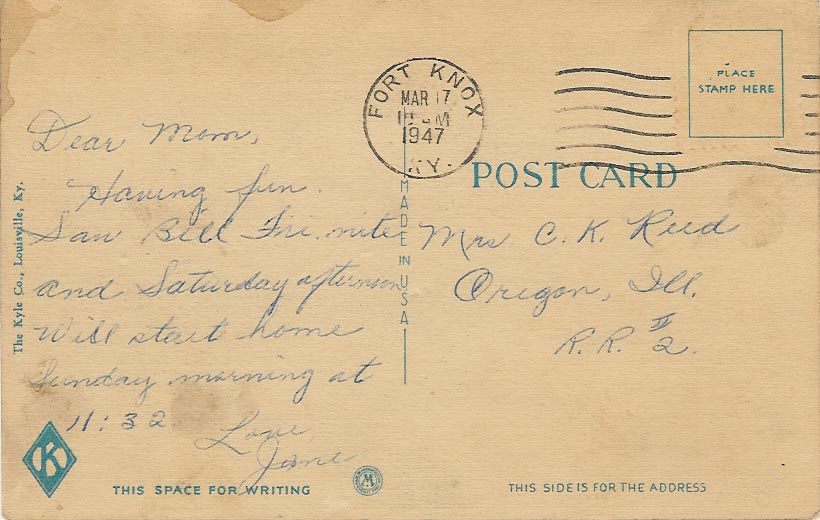 FORT KNOX
MAR 17
1947
KY.
PLACE
STAMP HERE
POST CARD
Dear Mom,
Having fun.
Saw Bill Fri. nite
and Saturday afternoon
Will start home
Sunday morning at
11:32
Love,
Jane
Mrs C. K. Reed
Oregon, Ill.
R.R. # 2.
MADE IN USA
The Kyle Co., Louisville, Ky.
K
THIS SPACE FOR WRITING
M
THIS SIDE IS FOR THE ADDRESS